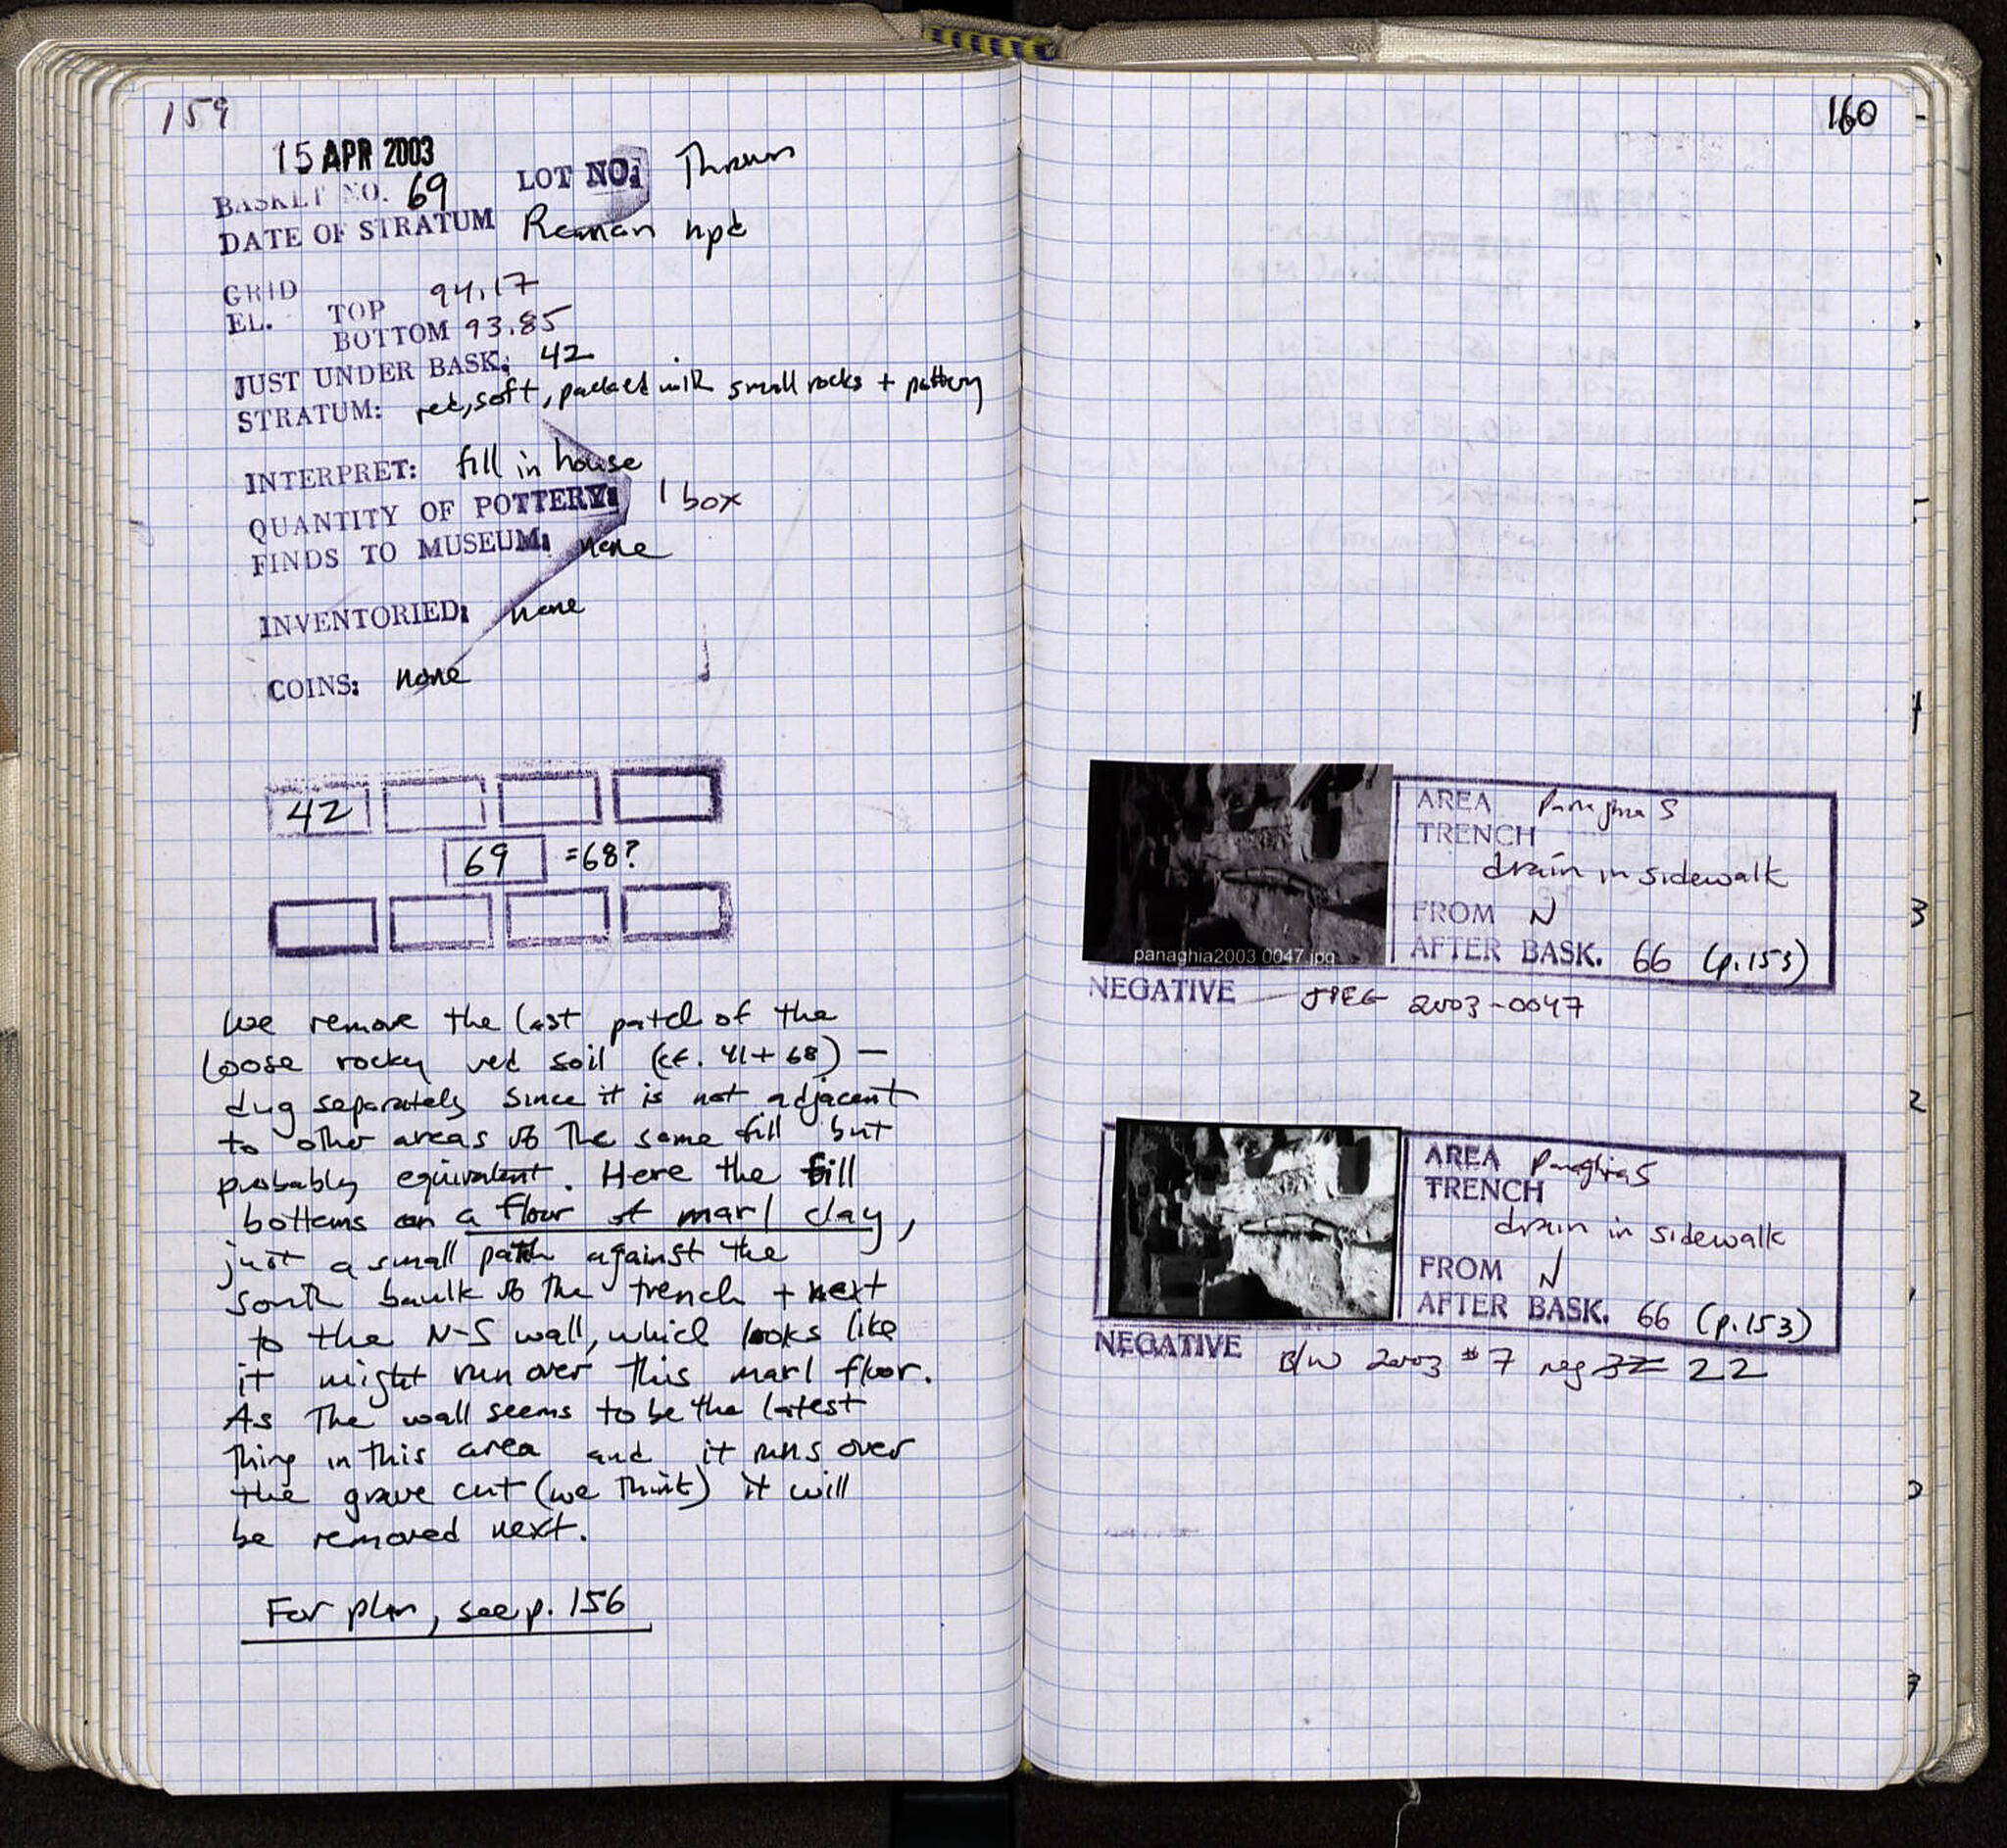 159
15 APR 2003
BASKET NO. 69 LOT NO: Thrown
DATE OF STRATUM Roman npd
GRID
EL. TOP 94.17
BOTTOM 93.85
JUST UNDER BASK: 42
STRATUM: red, soft, packed with small rocks + pottery
INTERPRET: fill in house
QUANTITY OF POTTERY: 1 box
FINDS TO MUSEUM: none
INVENTORIED: none
COINS: none
42
69 =68?
We remove the last patch of the
loose rocky red soil (cf. 41+68) —
dug separately since it is not adjacent
to other areas of the same fill but
probably equivalent. Here the fill
bottoms on a floor of marl clay,
just a small patch against the
south baulk of the trench + next
to the N-S wall, which looks like
it might run over this marl floor.
As the wall seems to be the latest
thing in this area and it runs over
the grave cut (we think) it will
be removed next.
For plan, see p. 156
160
AREA Panaghia S
TRENCH
drain in sidewalk
FROM N
AFTER BASK. 66 (p.153)
panaghia2003 0047.jpg
NEGATIVE JPEG 2003-0047
AREA Panaghia S
TRENCH
drain in sidewalk
FROM N
AFTER BASK. 66 (p.153)
NEGATIVE B/W 2003 #7 neg 22